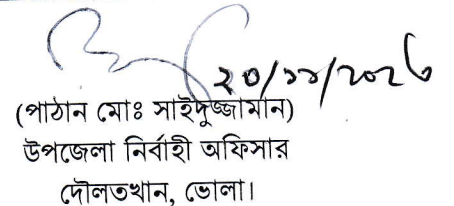 ২০/১১/২০২৩
(পাঠান মোঃ সাইদুজ্জামান)
উপজেলা নির্বাহী অফিসার
দৌলতখান, ভোলা।